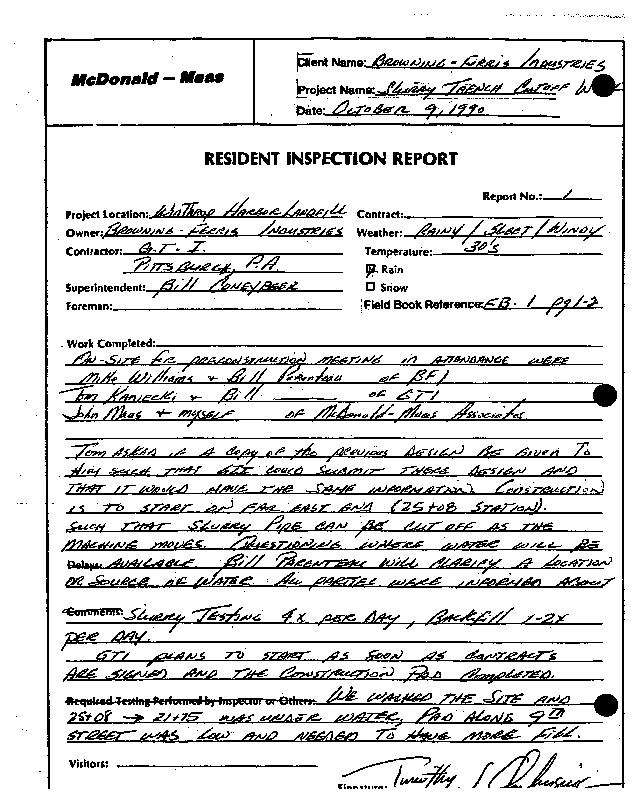 McDonald – Maas
Client Name: BROWNING-FERRIS INDUSTRIES
Project Name: SLURRY TRENCH CUTOFF
Date: OCTOBER 9, 1990
RESIDENT INSPECTION REPORT
Report No.: 1
Project Location: WINTHROP HARBOR LANDFILL
Contract:
Owner: BROWNING-FERRIS INDUSTRIES
Weather: RAINY / SLEET / WINDY
Contractor: G.T.I.
Temperature: 30's
PITTSBURGH, P.A
Rain
Superintendent: Bill CONEYBEER
Snow
Foreman:
Field Book Reference: FB. 1 pg 1-2
Work Completed:
ON-SITE FOR PRECONSTRUCTION MEETING IN ATTENDANCE WERE
Mike Williams & Bill Parenteau OF BFI
Tom KANIECKI & Bill OF GTI
John Maas & myself OF McDonald-Maas Associates
Tom ASKED IF A COPY OF THE PREVIOUS DESIGN BE GIVEN TO
HIM SUCH THAT GTI COULD SUBMIT THERE DESIGN AND
THAT IT WOULD HAVE THE SAME INFORMATION. CONSTRUCTION
IS TO START ON FAR EAST END (25+08 STATION).
SUCH THAT SLURRY PIPE CAN BE CUT OFF AS THE
MACHINE MOVES. QUESTIONING WHERE WATER WILL BE
Delays: AVAILABLE. Bill PARENTEAU WILL CLARIFY A LOCATION
OR SOURCE OF WATER. ALL PARTIES WERE INFORMED ABOUT
Comments: SLURRY TESTING 4X PER DAY, BACKFILL 1-2X
PER DAY.
GTI PLANS TO START AS SOON AS CONTRACTS
ARE SIGNED AND THE CONSTRUCTION PAD COMPLETED.
Required Testing Performed by Inspector or Others: WE WALKED THE SITE AND
25+08 → 21+75 WAS UNDER WATER, PAD ALONG 9TH
STREET WAS LOW AND NEEDED TO HAVE MORE FILL.
Visitors:
Signature: Timothy